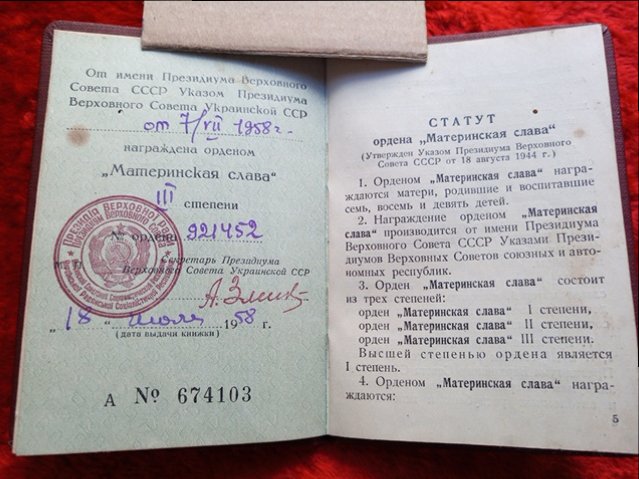 От имени Президиума Верховного
Совета СССР Указом Президиума
Верховного Совета Украинской ССР
от 7/VII 1958г.
награждена орденом
„Материнская слава“
III степени
№ ордена 921452
Секретарь Президиума
Верховного Совета Украинской ССР
„18“ июля 1958 г.
(дата выдачи книжки)
А № 674103
СТАТУТ
ордена „Материнская слава“
(Утвержден Указом Президиума Верховного
Совета СССР от 18 августа 1944 г.)
1. Орденом „Материнская слава“ награ-
ждаются матери, родившие и воспитавшие
семь, восемь и девять детей.
2. Награждение орденом „Материнская
слава“ производится от имени Президиума
Верховного Совета СССР Указами Прези-
диумов Верховных Советов союзных и авто-
номных республик.
3. Орден „Материнская слава“ состоит
из трех степеней:
орден „Материнская слава“ I степени,
орден „Материнская слава“ II степени,
орден „Материнская слава“ III степени.
Высшей степенью ордена является
I степень.
4. Орденом „Материнская слава“ награ-
ждаются:
5